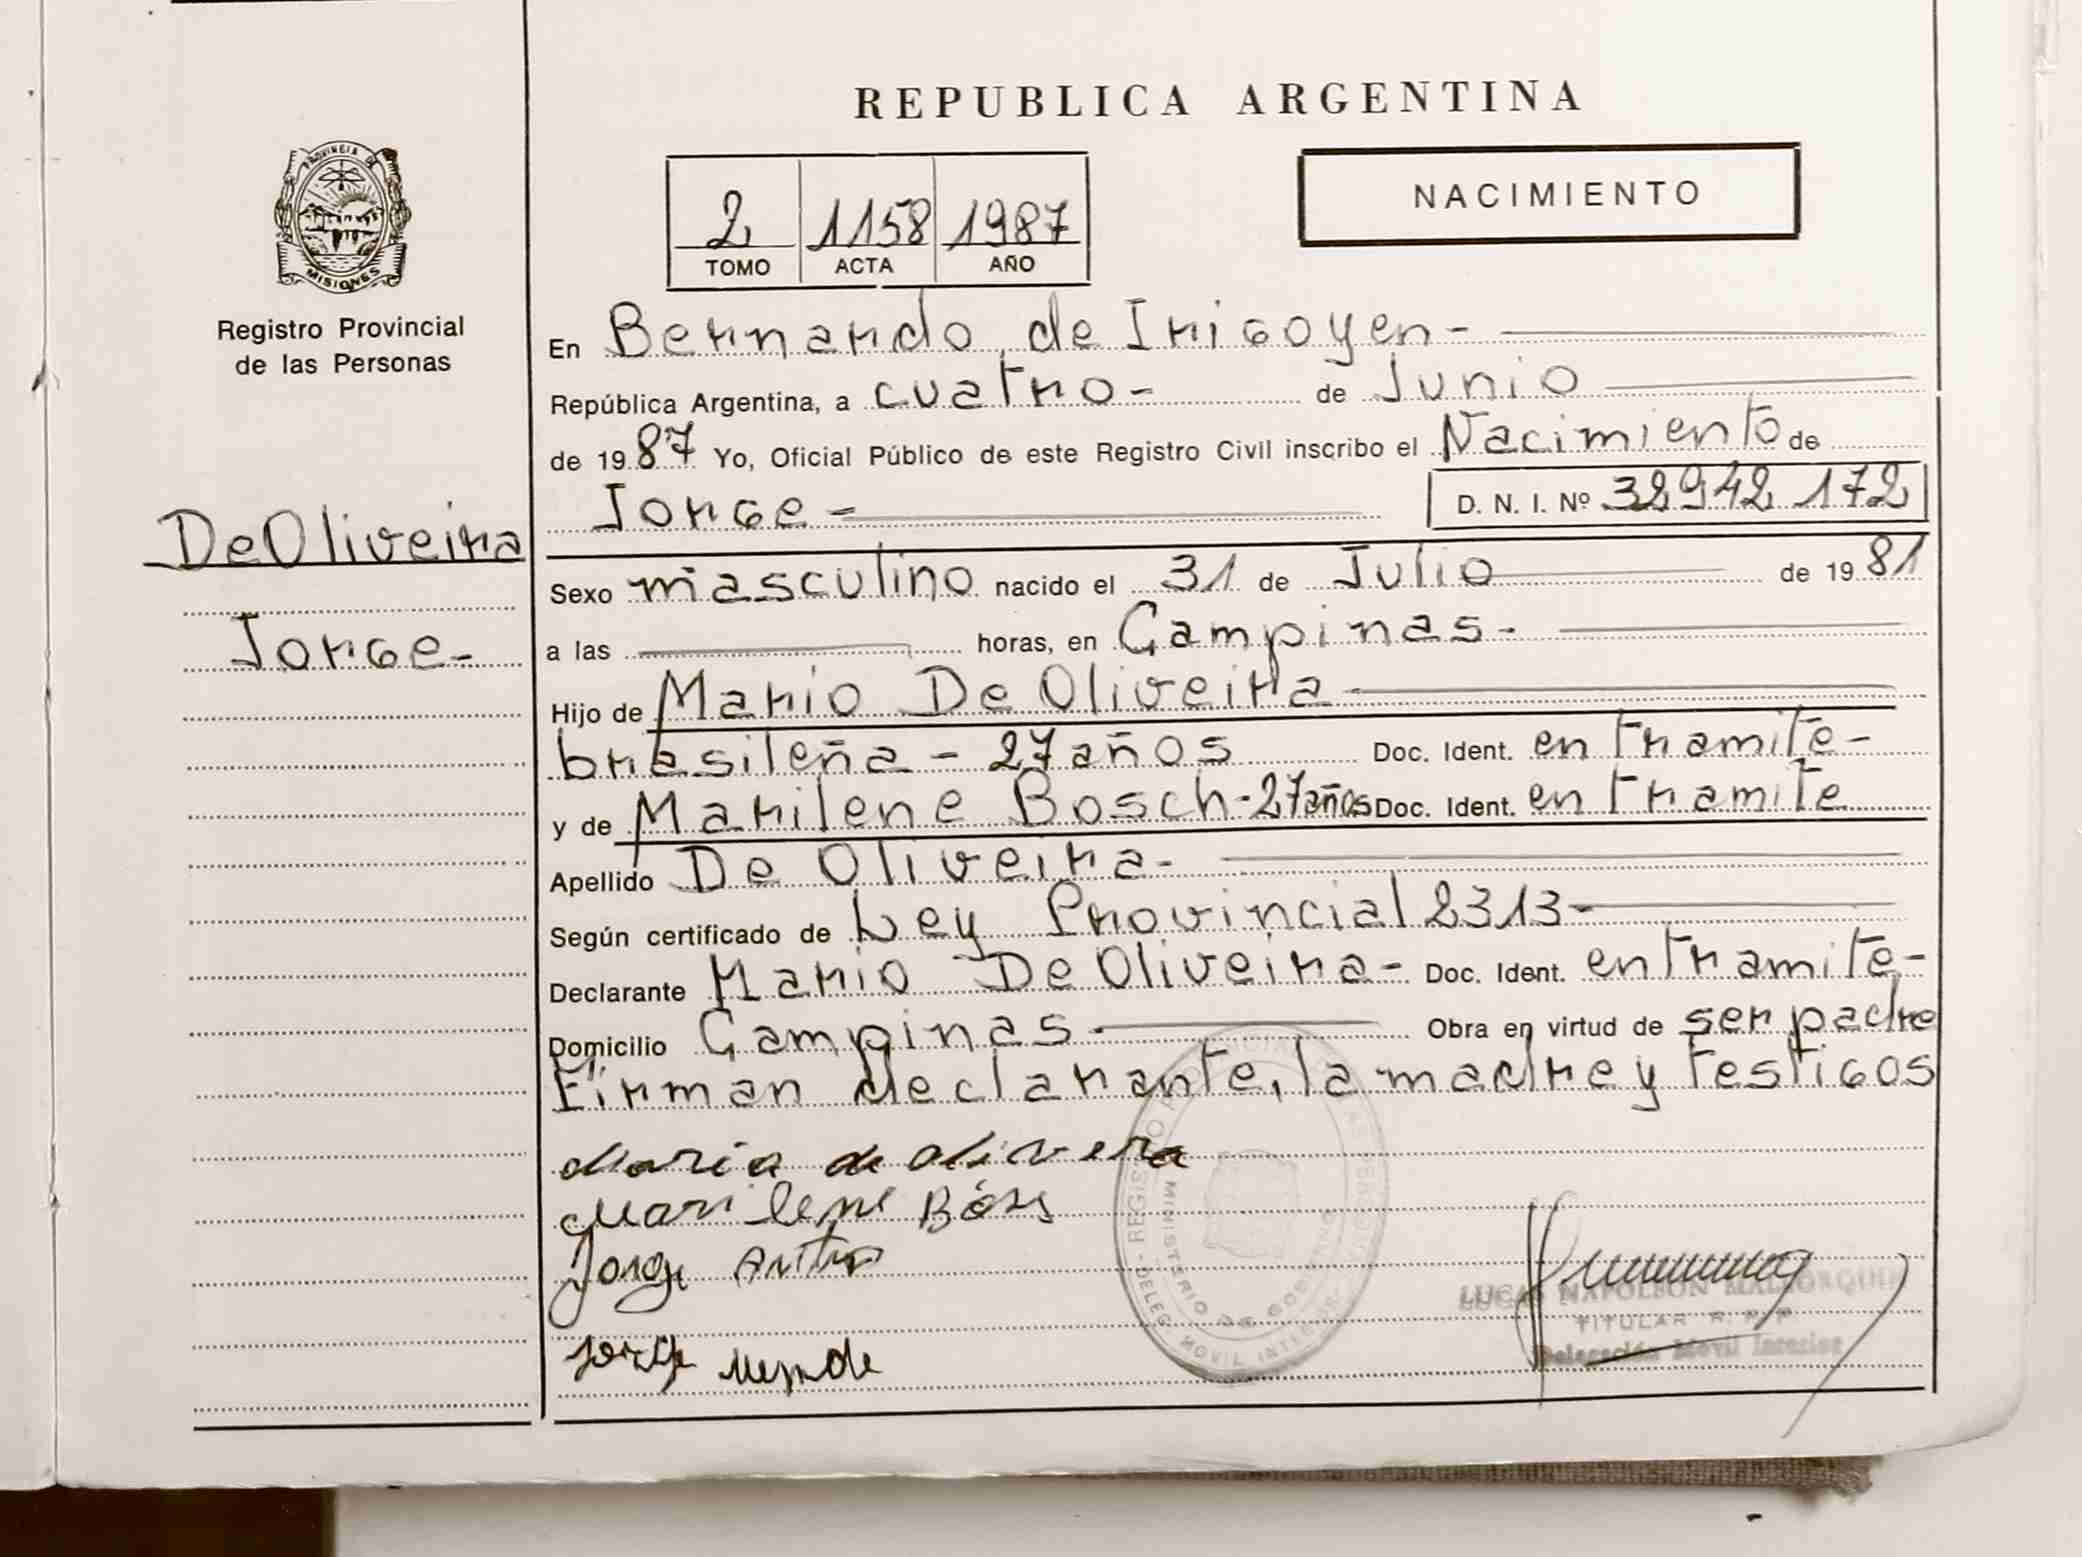 REPUBLICA ARGENTINA
PROVINCIA DE
MISIONES
Registro Provincial
de las Personas
2 1158 1987
TOMO ACTA AÑO
NACIMIENTO
En Bernardo de Irigoyen -
República Argentina, a cuatro - de Junio
de 1987 Yo, Oficial Público de este Registro Civil inscribo el Nacimiento de
Jorge -
D. N. I. Nº 32942172
De Oliveira
Jorge -
Sexo masculino nacido el 31 de Julio de 1981
a las horas, en Campinas -
Hijo de Mario De Oliveira -
brasileña - 27 años Doc. Ident. en tramite -
y de Marilene Bosch - 27 años Doc. Ident. en tramite
Apellido De Oliveira -
Según certificado de Ley Provincial 2313 -
Declarante Mario De Oliveira - Doc. Ident. en tramite -
Domicilio Campinas - Obra en virtud de ser padre
Firman declarante, la madre y testigos
de olivera
Marilene
Jorge
Jorge
REGISTRO
MINISTERIO DE GOBIERNO
DELEG. MOVIL INTERIOR
LUCAS NAPOLEON
TITULAR R. P. P.
Delegación Movil Interior